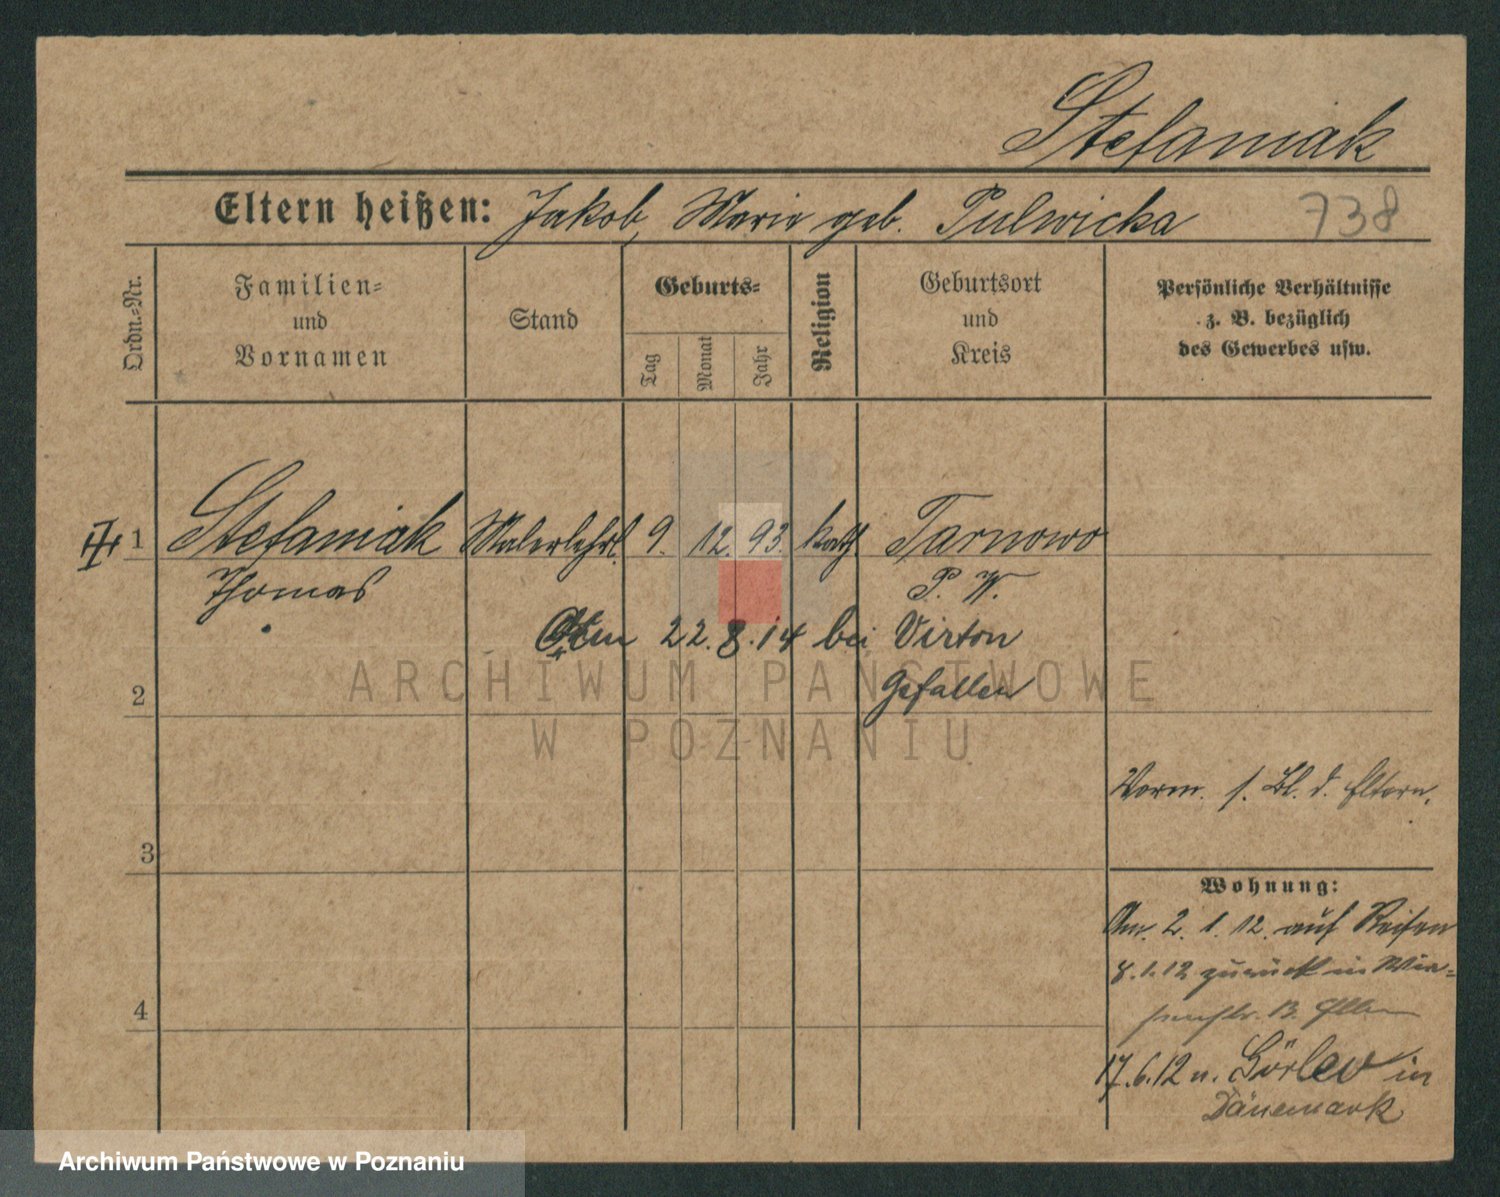 Stefaniak
Eltern heißen: Jakob, Marie geb. Pulwicka
738
Ordn.-Nr.
Familien-
und
Vornamen
Stand
Geburts-
Tag
Monat
Jahr
Religion
Geburtsort
und
Kreis
Persönliche Verhältnisse
z. B. bezüglich
des Gewerbes usw.
1 Stefaniak Malerlehrl. 9. 12. 93. kath. Tarnowo
Thomas P. W.
Am 22.8.14 bei Virton
gefallen
ARCHIWUM PAŃSTWOWE
W POZNANIU
2
Verm. s. Bl. d. Eltern.
3
Wohnung:
2. 1. 12. auf Reisen
8.1.12 zurück in
B. Eltern
4
17.6.12 n. Görlev in
Dänemark
Archiwum Państwowe w Poznaniu